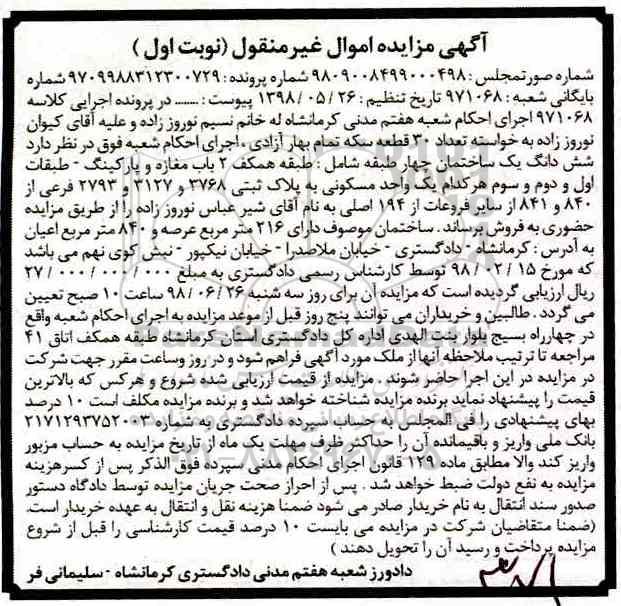 آگهی مزایده اموال غیرمنقول (نوبت اول)
شماره صورتمجلس: ۹۸۰۹۰۰۸۴۹۹۰۰۰۴۹۸ شماره پرونده: ۹۷۰۹۹۸۸۳۱۲۳۰۰۷۲۹ شماره
بایگانی شعبه: ۹۷۱۰۶۸ تاریخ تنظیم: ۱۳۹۸/۰۵/۲۶ پیوست: ........ در پرونده اجرایی کلاسه
۹۷۱۰۶۸ اجرای احکام شعبه هفتم مدنی کرمانشاه له خانم نسیم نوروز زاده و علیه آقای کیوان
نوروز زاده به خواسته تعداد ۳۰ قطعه سکه تمام بهار آزادی، اجرای احکام شعبه فوق در نظر دارد
شش دانگ یک ساختمان چهار طبقه شامل: طبقه همکف ۲ باب مغازه و پارکینگ - طبقات
اول و دوم و سوم هر کدام یک واحد مسکونی به پلاک ثبتی ۳۷۶۸ و ۳۱۲۷ و ۲۷۹۳ فرعی از
۸۴۰ و ۸۴۱ از سایر فروعات از ۱۹۴ اصلی به نام آقای شیر عباس نوروز زاده را از طریق مزایده
حضوری به فروش برساند. ساختمان موصوف دارای ۲۱۶ متر مربع عرصه و ۸۴۰ متر مربع اعیان
به آدرس: کرمانشاه - دادگستری - خیابان ملاصدرا - خیابان نیکپور - نبش کوی نهم می باشد
که مورخ ۹۸/۰۲/۱۵ توسط کارشناس رسمی دادگستری به مبلغ ۲۷/۰۰۰/۰۰۰/۰۰۰
ریال ارزیابی گردیده است که مزایده آن برای روز سه شنبه ۹۸/۰۶/۲۶ ساعت ۱۰ صبح تعیین
می گردد. طالبین و خریداران می توانند پنج روز قبل از موعد مزایده به اجرای احکام شعبه واقع
در چهارراه بسیج بلوار بنت الهدی اداره کل دادگستری استان کرمانشاه طبقه همکف اتاق ۴۱
مراجعه تا ترتیب ملاحظه آنها از ملک مورد آگهی فراهم شود و در روز وساعت مقرر جهت شرکت
در مزایده در این اجرا حاضر شوند. مزایده از قیمت ارزیابی شده شروع و هرکس که بالاترین
قیمت را پیشنهاد نماید برنده مزایده شناخته خواهد شد و برنده مزایده مکلف است ۱۰ درصد
بهای پیشنهادی را فی المجلس به حساب سپرده دادگستری به شماره ۲۱۷۱۲۹۳۷۵۲۰۰۳
بانک ملی واریز و باقیمانده آن را حداکثر ظرف مهلت یک ماه از تاریخ مزایده به حساب مزبور
واریز کند والا مطابق ماده ۱۲۹ قانون اجرای احکام مدنی سپرده فوق الذکر پس از کسرهزینه
مزایده به نفع دولت ضبط خواهد شد. پس از احراز صحت جریان مزایده توسط دادگاه دستور
صدور سند انتقال به نام خریدار صادر می شود ضمنا هزینه نقل و انتقال به عهده خریدار است.
(ضمنا متقاضیان شرکت در مزایده می بایست ۱۰ درصد قیمت کارشناسی را قبل از شروع
مزایده پرداخت و رسید آن را تحویل دهند)
دادورز شعبه هفتم مدنی دادگستری کرمانشاه - سلیمانی فر